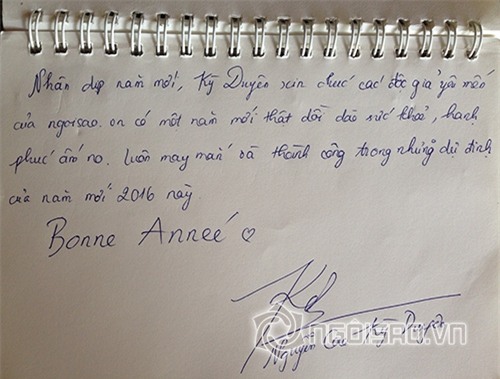 Nhân dịp năm mới, Kỳ Duyên xin chúc các độc giả yêu mến
của ngoisao.vn có một năm mới thật dồi dào sức khoẻ, hạnh
phúc ấm no. Luôn may mắn và thành công trong những dự định
của năm mới 2016 này
Bonne Anneé ♡
Kd
NGOISAO.VN
Nguyễn Cao Kỳ Duyên